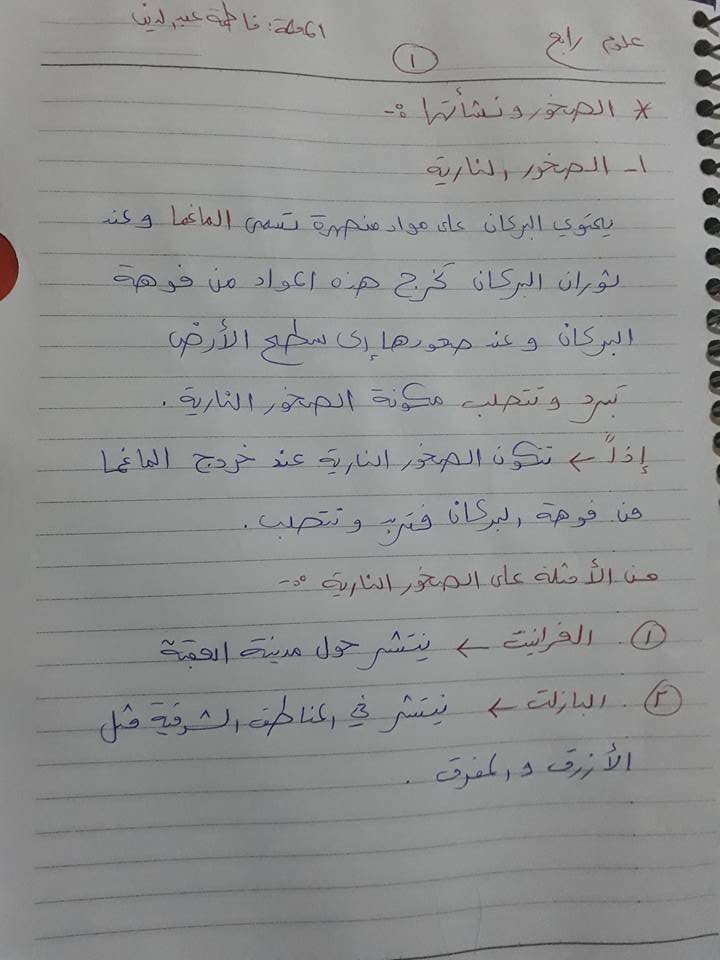 علوم رابع
المعلمة: فاطمة عبد
١
* الصخور ونشأتها :-
١- الصخور النارية
يحتوي البركان على مواد منصهرة تسمى الماغما وعند
ثوران البركان تخرج هذه المواد من فوهة
البركان وعند صعودها إلى سطح الأرض
تبرد وتتصلب مكونة الصخور النارية .
إذاً ← تتكون الصخور النارية عند خروج الماغما
من فوهة البركان فتبرد وتتصلب .
من الأمثلة على الصخور النارية :-
١. الغرانيت ← ينتشر حول مدينة العقبة
٢. البازلت ← ينتشر في المناطق الشرقية مثل
الأزرق والمفرق .